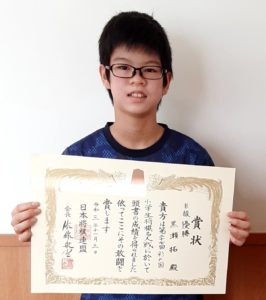 賞状
B級 優勝
黒瀬 拓 殿
貴方は第
小学生将棋名人戦に於いて
頭書の成績を得られました
依ってここにその敢闘を
賞します
令和三年
日本将棋連盟
会長 佐藤康光